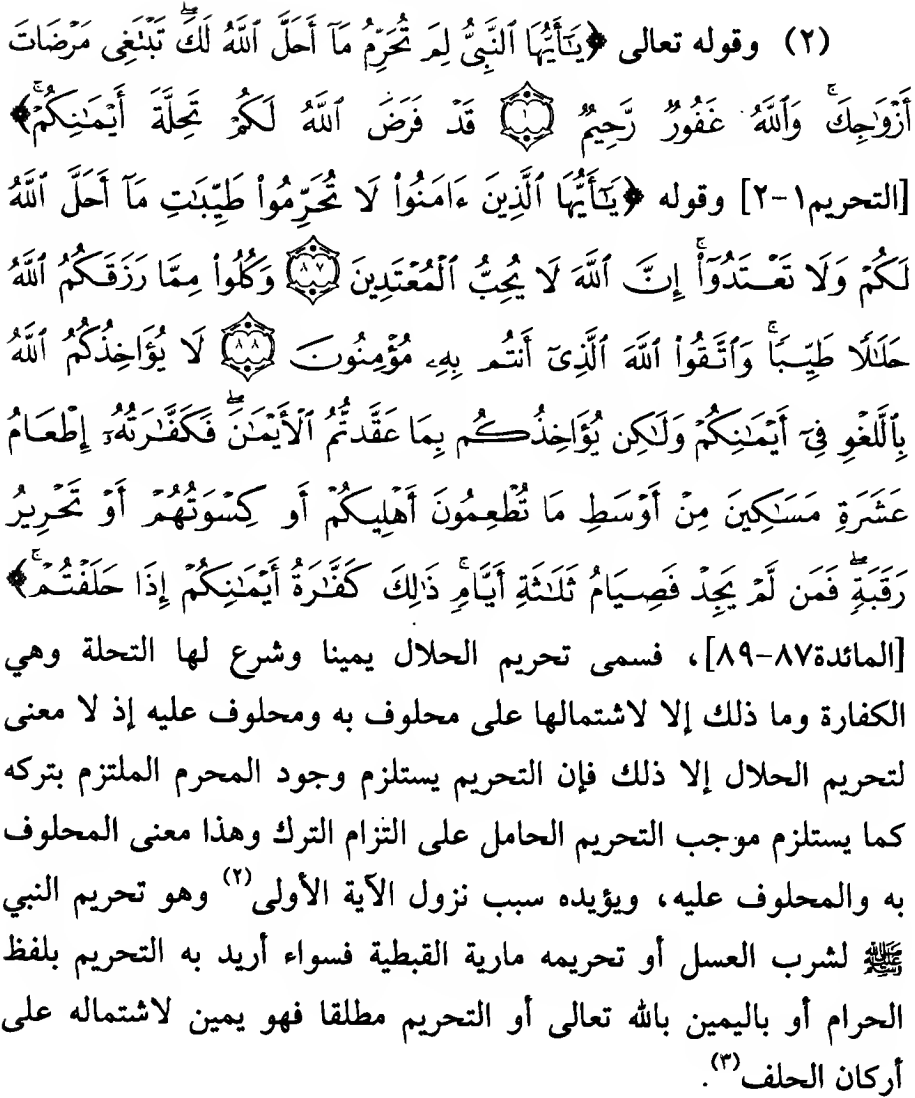 (٢) وقوله تعالى ﴿يَٰٓأَيُّهَا ٱلنَّبِىُّ لِمَ تُحَرِّمُ مَآ أَحَلَّ ٱللَّهُ لَكَۖ تَبْتَغِى مَرْضَاتَ
أَزْوَٰجِكَۚ وَٱللَّهُ غَفُورٌ رَّحِيمٌ ١ قَدْ فَرَضَ ٱللَّهُ لَكُمْ تَحِلَّةَ أَيْمَٰنِكُمْۚ﴾
[التحريم١-٢] وقوله ﴿يَٰٓأَيُّهَا ٱلَّذِينَ ءَامَنُوا۟ لَا تُحَرِّمُوا۟ طَيِّبَٰتِ مَآ أَحَلَّ ٱللَّهُ
لَكُمْ وَلَا تَعْتَدُوٓا۟ۚ إِنَّ ٱللَّهَ لَا يُحِبُّ ٱلْمُعْتَدِينَ ٨٧ وَكُلُوا۟ مِمَّا رَزَقَكُمُ ٱللَّهُ
حَلَٰلًا طَيِّبًاۚ وَٱتَّقُوا۟ ٱللَّهَ ٱلَّذِىٓ أَنتُم بِهِۦ مُؤْمِنُونَ ٨٨ لَا يُؤَاخِذُكُمُ ٱللَّهُ
بِٱللَّغْوِ فِىٓ أَيْمَٰنِكُمْ وَلَٰكِن يُؤَاخِذُكُم بِمَا عَقَّدتُّمُ ٱلْأَيْمَٰنَۖ فَكَفَّٰرَتُهُۥٓ إِطْعَامُ
عَشَرَةِ مَسَٰكِينَ مِنْ أَوْسَطِ مَا تُطْعِمُونَ أَهْلِيكُمْ أَوْ كِسْوَتُهُمْ أَوْ تَحْرِيرُ
رَقَبَةٍۖ فَمَن لَّمْ يَجِدْ فَصِيَامُ ثَلَٰثَةِ أَيَّامٍۚ ذَٰلِكَ كَفَّٰرَةُ أَيْمَٰنِكُمْ إِذَا حَلَفْتُمْۚ﴾
[المائدة٨٧-٨٩]، فسمى تحريم الحلال يمينا وشرع لها التحلة وهي
الكفارة وما ذلك إلا لاشتمالها على محلوف به ومحلوف عليه إذ لا معنى
لتحريم الحلال إلا ذلك فإن التحريم يستلزم وجود المحرم الملتزم بتركه
كما يستلزم موجب التحريم الحامل على التزام الترك وهذا معنى المحلوف
به والمحلوف عليه، ويؤيده سبب نزول الآية الأولى(٢) وهو تحريم النبي
ﷺ لشرب العسل أو تحريمه مارية القبطية فسواء أريد به التحريم بلفظ
الحرام أو باليمين بالله تعالى أو التحريم مطلقا فهو يمين لاشتماله على
أركان الحلف(٣).